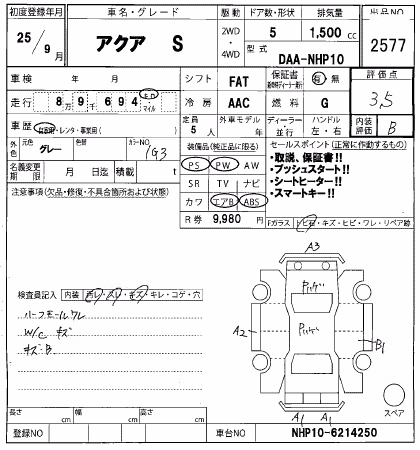 初度登録年月 車名・グレード 駆動 ドア数・形状 排気量 出品NO
25/9月 アクア S 2WD・4WD 5 1,500cc 2577
型式 DAA-NHP10
車検 年 月 シフト FAT 保証書 有 無 評価点
走行 8万9千694 キロ マイル 冷房 AAC 燃料 G 3,5
車歴 自家用・レンタ・事業用( ) 定員 5人 外車モデル 年 ディーラー・並行 ハンドル 左・右 内装評価 B
外色 元色 グレー カラーNO 1G3 装備品(純正品に限る) セールスポイント(正常に作動するもの)
名義変更期限 月 日迄 積載 t PS PW AW ・取説、保証書!!
注意事項(欠品・修復・不具合箇所および状態) SR TV ナビ ・プッシュスタート!!
カワ エアB ABS ・シートヒーター!!
・スマートキー!!
R券 9,980円 Fガラス トビ石・キズ・ヒビ・ワレ・リペア跡
A3
検査員記入 内装 汚レ・スレ・キズ・キレ・コゲ・穴
ハーフモールワレ
W/C キズ A2 B1
キズB
長さ cm 幅 cm 高さ cm A1 A1 スペア
登録NO 車台NO NHP10-6214250